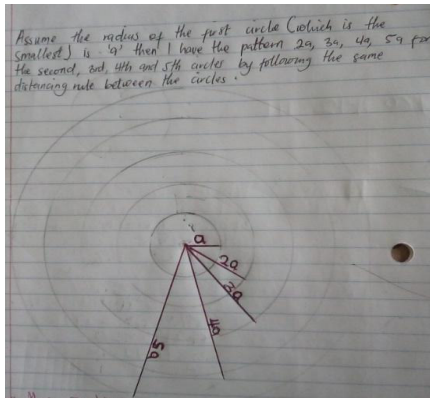 Assume the radius of the first circle (which is the
smallest) is 'a' then I have the pattern 2a, 3a, 4a, 5a for
the second, 3rd, 4th and 5th circles by following the same
distancing rule between the circles.
a
2a
3a
4a
5a